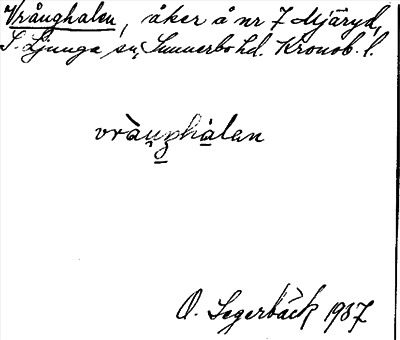 Vrånghalen, åker å nr 7 Mjäryd,
S. Ljunga sn, Sunnerbo hd. Kronob. l.
vràu̱ꝫhàlen
O. Segerbäck 1937